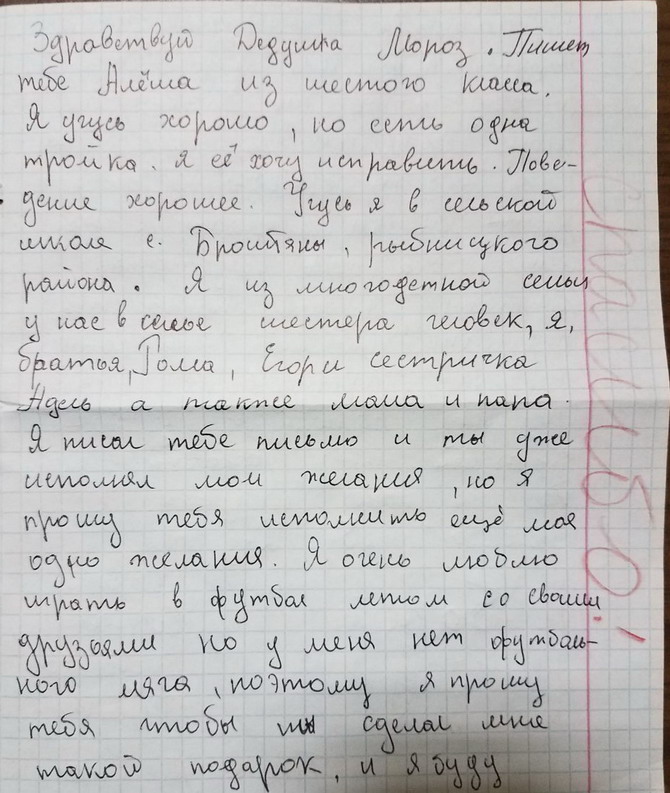 Здравствуй Дедушка Мороз. Пишет
тебе Алёша из шестого класса.
Я учусь хорошо, но есть одна
тройка. я её хочу исправить. Пове-
дение хорошее. Учусь я в сельской
школе с. Броштяны, рыбницкого
района. Я из многодетной семьи
у нас в семье шестера человек, я,
братья, Рома, Егор и сестричка
Адель а также мама и папа.
Я писал тебе письмо и ты уже
исполнял мои желания, но я
прошу тебя исполнить ещё моя
одно желания. Я очень люблю
играть в футбол летом со своими
друзьями но у меня нет футболь-
ного мяча, поэтому я прошу
тебя чтобы ты сделал мне
такой подарок, и я буду
Спасибо!